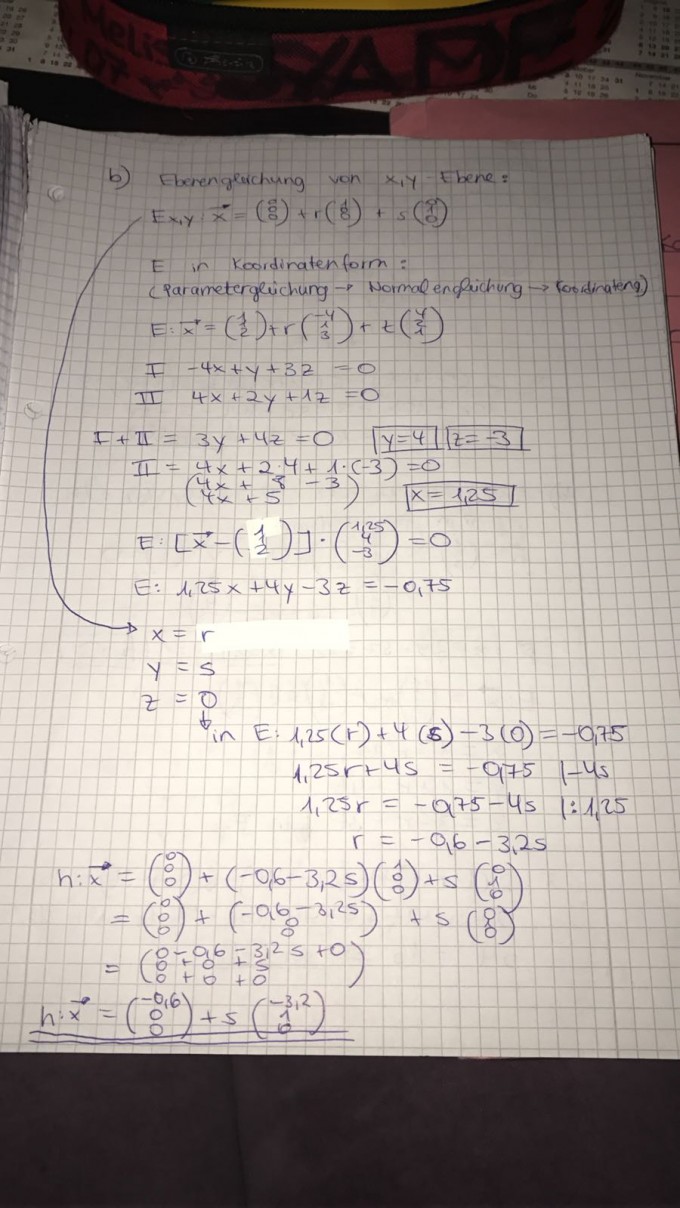 Melis
07
b) Ebenengleichung von x,y-Ebene:
Ex,y: x⃗ = (0 0 0) + r(1 0 0) + s(0 1 0)
E in Koordinatenform:
(Parametergleichung → Normalengleichung → Koordinateng)
E: x⃗ = (1 1 2) + r(-4 1 3) + t(4 2 1)
I -4x+y+3z = 0
II 4x+2y+1z = 0
I + II = 3y+4z = 0 y=4 z=-3
II = 4x+2·4+1·(-3) = 0
(4x + 8 - 3
4x + 5) x = 1,25
E: [x⃗ - (1 1 2)] · (1,25 4 -3) = 0
E: 1,25x+4y-3z = -0,75
x = r
y = s
z = 0
↓ in E: 1,25(r)+4(s)-3(0) = -0,75
1,25r+4s = -0,75 |-4s
1,25r = -0,75-4s |:1,25
r = -0,6-3,2s
h: x⃗ = (0 0 0) + (-0,6-3,2s)(1 0 0) + s(0 1 0)
= (0 0 0) + (-0,6-3,2s 0 0) + s(0 1 0)
= (0-0,6-3,2s+0 0+0+s 0+0+0)
h: x⃗ = (-0,6 0 0) + s(-3,2 1 0)